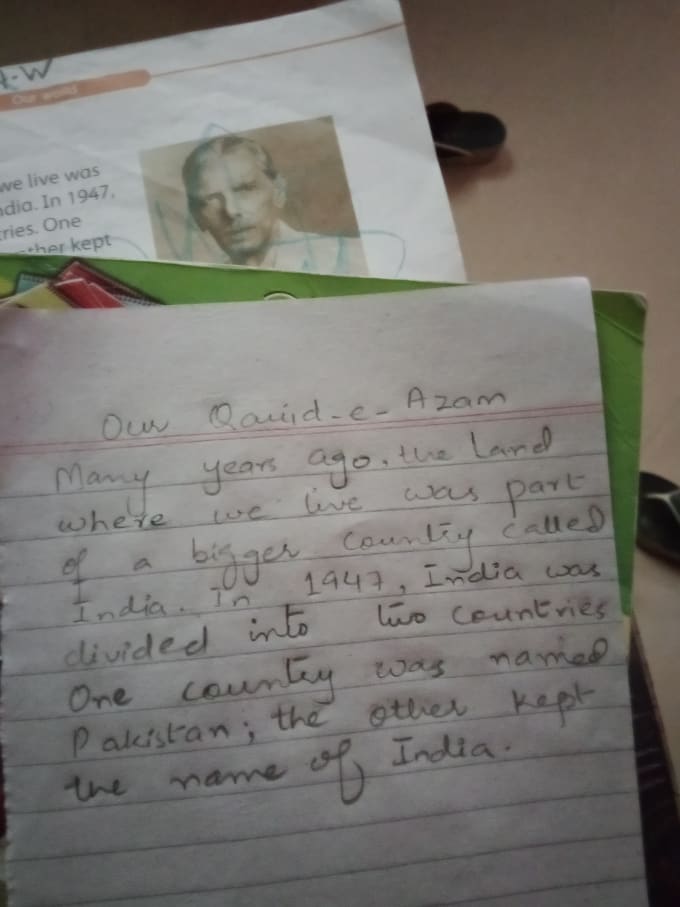 R-W
Our world
we live was
ndia. In 1947,
tries. One
ther kept
Our Qauid-e-Azam
Many years ago, the Land
where we live was part
of a bigger country called
India. In 1947, India was
divided into two countries
One country was named
Pakistan; the other kept
the name of India.